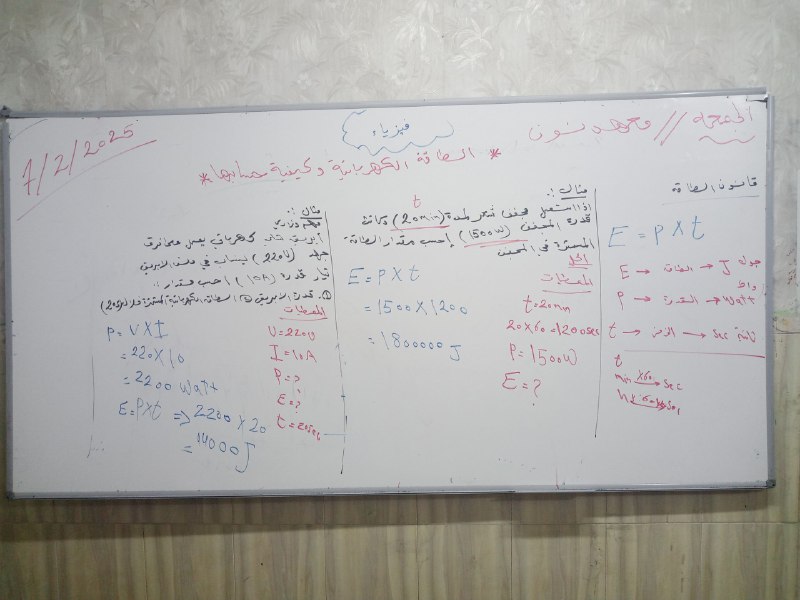 الجمعة // معهد نون
فيزياء
7/2/2025
* الطاقة الكهربائية وكيفية حسابها *
قانون الطاقة
E = P X t
E → الطاقة → J جول
P → القدرة → watt واط
t → الزمن → sec ثانية
t
min x60→ sec
مثال :-
اذا استعمل مجفف شعر لمدة (20min) وكانت
t
قدرة المجفف (1500W) إحسب مقدار الطاقة
في المجفف
الحل
المعطيات
t=20min
20x60=1200sec
P=1500W
E=?
E=PXt
=1500X1200
=1800000J
مثال :-
أبريق شاي كهربائي يعمل على فرق
جهد (220V) ينساب في ملف الابريق
تيار قدره (10A) احسب مقدار :-
① قدرة الأبريق ② الطاقة الكهربائية خلال (20s)
المعطيات
V=220V
I=10A
P=?
E=?
t=20sec
P=VXI
=220X10
=2200 watt
E=PXt ⇒ 2200X20
=44000J